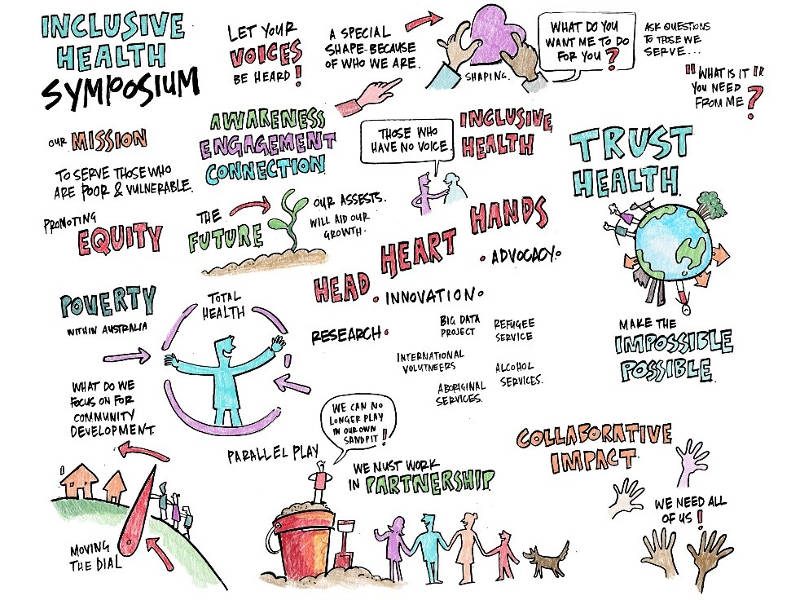 INCLUSIVE
HEALTH
SYMPOSIUM
LET YOUR
VOICES
BE HEARD!
A SPECIAL
SHAPE-BECAUSE
OF WHO WE ARE.
SHAPING.
WHAT DO YOU
WANT ME TO DO
FOR YOU?
ASK QUESTIONS
TO THOSE WE
SERVE...
"WHAT IS IT"
YOU NEED
FROM ME?
OUR MISSION
TO SERVE THOSE WHO
ARE POOR & VULNERABLE.
PROMOTING
EQUITY
AWARENESS
ENGAGEMENT
CONNECTION
THOSE WHO
HAVE NO VOICE.
INCLUSIVE
HEALTH
TRUST
HEALTH.
THE
FUTURE
OUR ASSESTS.
WILL AID OUR
GROWTH.
HEAD HEART HANDS
• INNOVATION •
• ADVOCACY •
RESEARCH •
BIG DATA
PROJECT
REFUGEE
SERVICE
INTERNATIONAL
VOLUTNEERS
ALCOHOL
SERVICES.
ABORIGINAL
SERVICES.
MAKE THE
IMPOSSIBLE
POSSIBLE.
POVERTY
WITHIN AUSTRALIA
TOTAL
HEALTH
WHAT DO WE
FOCUS ON FOR
COMMUNITY
DEVELOPMENT.
MOVING
THE DIAL
PARALLEL PLAY
WE CAN NO
LONGER PLAY
IN OUR OWN
SANDPIT!
WE MUST WORK
IN PARTNERSHIP.
COLLABORATIVE
IMPACT
WE NEED ALL
OF US!